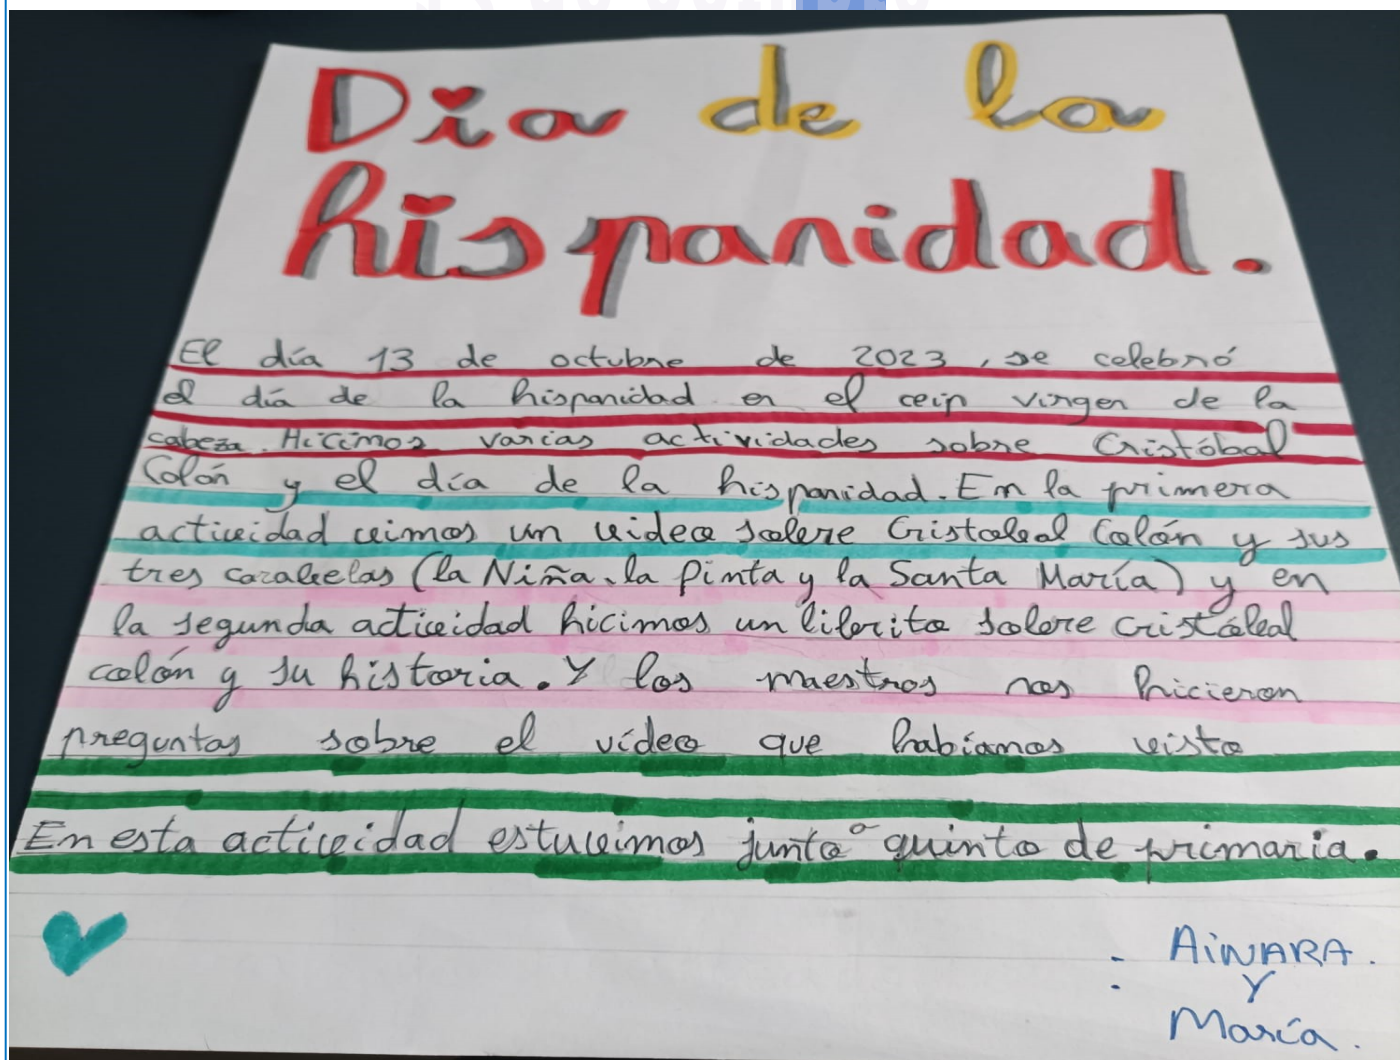 Dia de la
hispanidad.
El día 13 de octubre de 2023, se celebró
el día de la hispanidad en el ceip virgen de la
cabeza. Hicimos varias actividades sobre Cristóbal
Colón y el día de la hispanidad. En la primera
actividad vimos un video sobre Cristobal Colón y sus
tres carabelas (la Niña, la Pinta y la Santa María) y en
la segunda actividad hicimos un librito sobre cristóbal
colón y su historia. Y los maestros nos hicieron
preguntas sobre el vídeo que habíamos visto
En esta actividad estuvimos junto a quinto de primaria.
AiNARA.
Y
María.